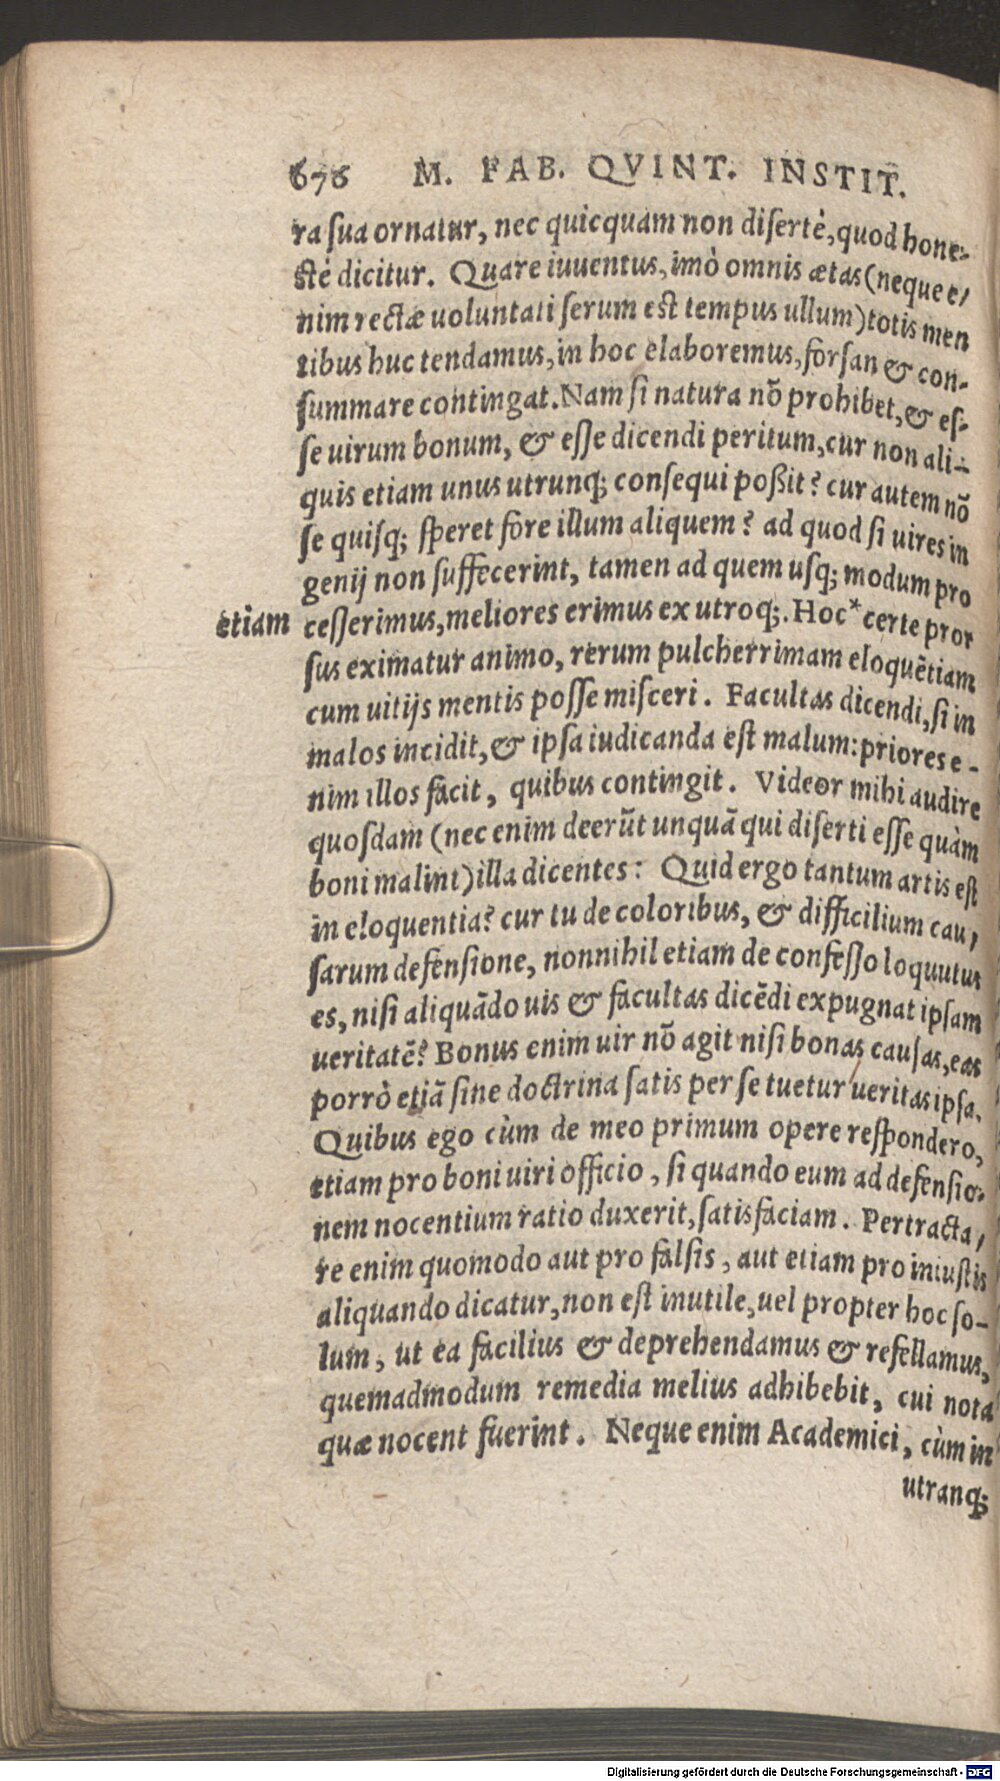 676 M. FAB. QVINT. INSTIT.
ra sua ornatur, nec quicquam non disertè, quod hone-
stè dicitur. Quare iuuentus, imò omnis ætas (neque e,
nim rectæ uoluntati serum est tempus ullum) totis men
tibus huc tendamus, in hoc elaboremus, forsan & con-
summare contingat. Nam si natura nō prohibet, & es-
se uirum bonum, & esse dicendi peritum, cur non ali-
quis etiam unus utrunq; consequi poßit? cur autem nō
se quisq; speret fore illum aliquem? ad quod si uires in
genij non suffecerint, tamen ad quem usq; modum pro
etiam cesserimus, meliores erimus ex utroq;. Hoc* certe pror
sus eximatur animo, rerum pulcherrimam eloquētiam
cum uitijs mentis posse misceri. Facultas dicendi, si in
malos incidit, & ipsa iudicanda est malum: priores e-
nim illos facit, quibus contingit. Videor mihi audire
quosdam (nec enim deerūt unquā qui diserti esse quàm
boni malint) illa dicentes: Quid ergo tantum artis est
in eloquentia? cur tu de coloribus, & difficilium cau,
sarum defensione, nonnihil etiam de confesso loquutus
es, nisi aliquādo uis & facultas dicēdi expugnat ipsam
ueritatē? Bonus enim uir nō agit nisi bonas causas, eas
porrò etiā sine doctrina satis per se tuetur ueritas ipsa.
Quibus ego cùm de meo primum opere respondero,
etiam pro boni uiri officio, si quando eum ad defensio-
nem nocentium ratio duxerit, satisfaciam. Pertracta,
re enim quomodo aut pro falsis, aut etiam pro iniustis
aliquando dicatur, non est inutile, uel propter hoc so-
lum, ut ea facilius & deprehendamus & refellamus,
quemadmodum remedia melius adhibebit, cui nota
quæ nocent fuerint. Neque enim Academici, cùm in
utranq;
Digitalisierung gefördert durch die Deutsche Forschungsgemeinschaft - DFG